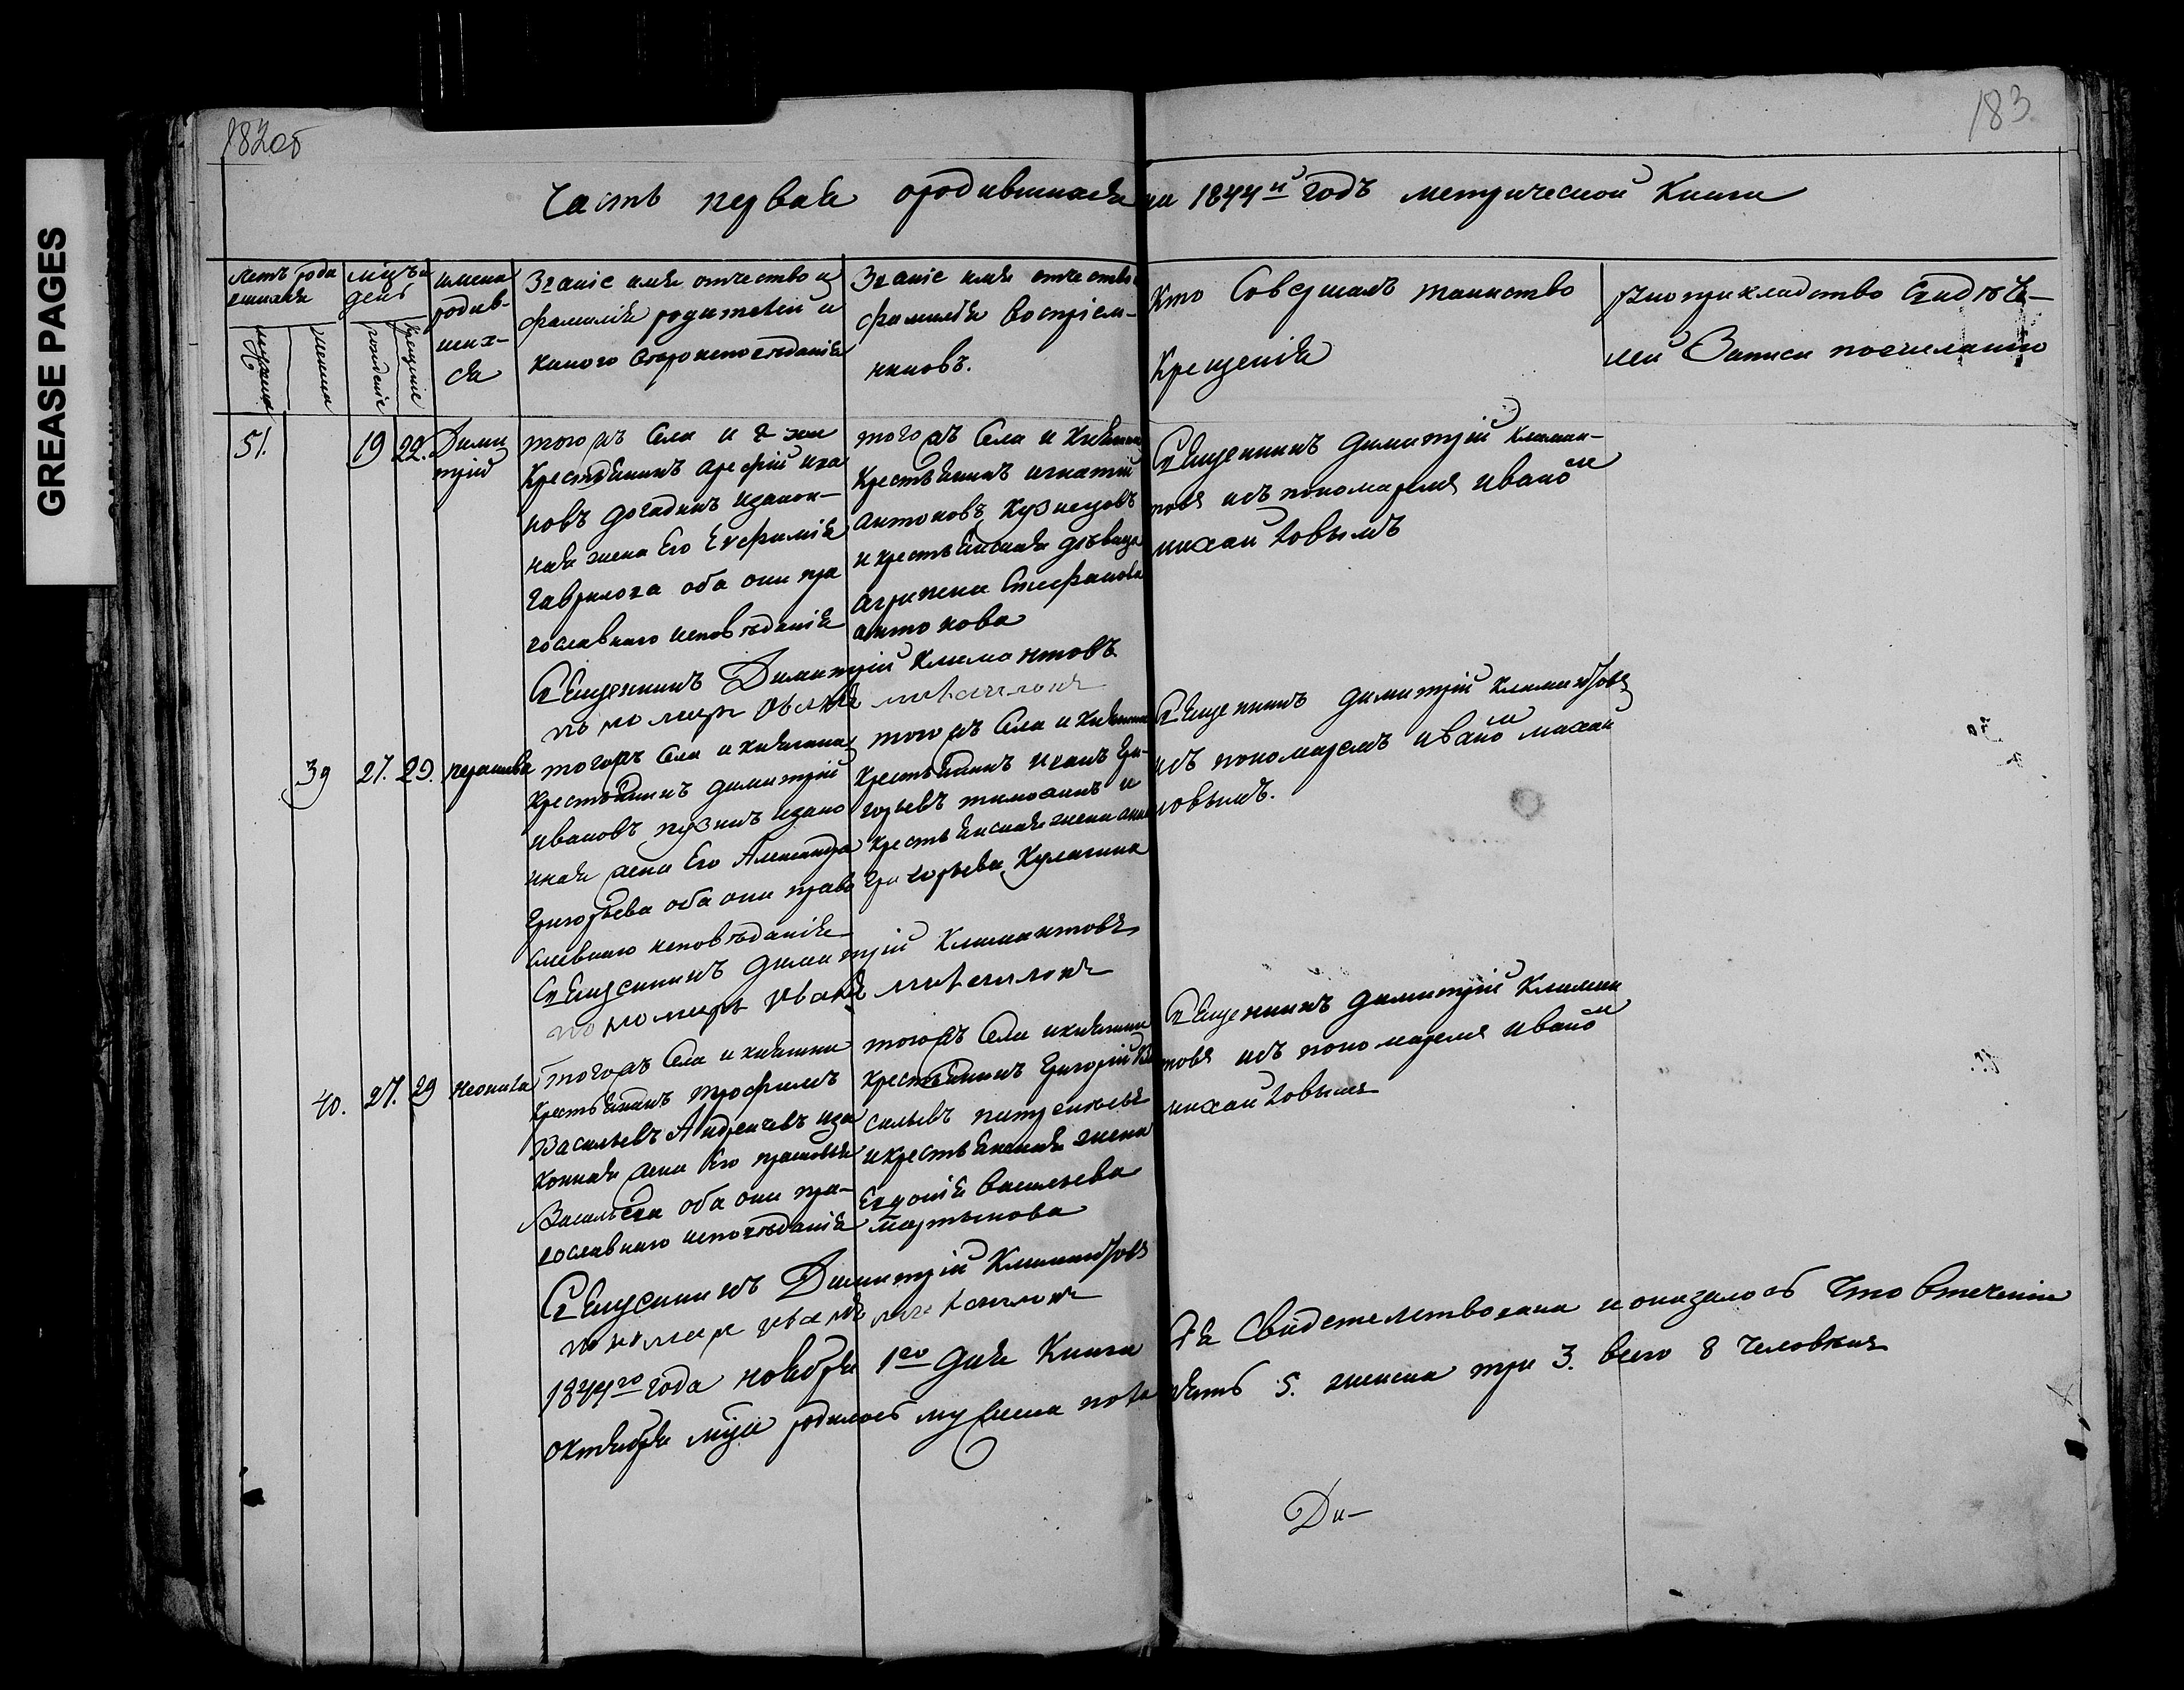 182об
183
GREASE PAGES
Часть первая ородившихся на 1844й годъ метрической Книги
щетъ роди
вшихся
мужеска
женска
мцъ и
день
рожденіе
крещеніе
имена
родив-
ших-
ся
Званіе имя отчество и
фамилія родителей и
какого вероисповѣданія
Званіе имя отчество
фамилія воспріем-
никовъ.
Кто Совершалъ таинство
Крещенія
рукоприкладство Свидѣте-
лей Записи пожеланію
51.
19
22.
Дими
трій
тогожъ Села и
Крестьянинъ Арефій Ива
новъ догадинъ изакон-
ная жена Его Евфимія
гаврилова оба они пра
вославнаго исповѣданія
тогожъ Села и
Крестьянинъ игнатій
антоновъ Кузнецовъ
и крестьянская дѣвица
агрипена Стефанова
антонова
Священникъ димитрій Климан-
товъ исъ пономаремъ иваномъ
михайловымъ
Священникъ Димитрій Климантовъ
пономарь иванъ михайловъ
39
27.
29.
парасковва
тогожъ Села и
Крестьянинъ димитрій
ивановъ пузинъ изако
нная жена Его Александра
Григорьева оба они право
славнаго исповѣданія
тогожъ Села и
Крестьянинъ иванъ Гри-
горьевъ тимошинъ и
Крестьянская жена анна
Григорьева Кулагина
Священникъ димитрій Климантовъ
исъ пономаремъ иваномъ михай
ловымъ.
Священникъ димитрій Климантовъ
пономарь иванъ михайловъ
40.
27.
29
неонила
тогожъ Села и
Крестьянинъ трофимъ
Васильевъ Андреичевъ иза
конная жена Его прасковья
Васильева оба они пра-
вославнаго исповѣданія
тогожъ Села и
Крестьянинъ Григорій Ва
сильевъ
икрестьянская жена
Евдокія Васильева
мартынова
Священникъ димитрій Климан
товъ исъ пономаремъ иваномъ
михайловымъ
Священникъ Димитрій Климантовъ
пономарь иванъ михайловъ
1844го года ноября 1го дня Книга Сія Свидетельствована иоказалось Что втеченіи
октября мца родилось мужеска полу пять 5. женска три 3. всего 8 человѣкъ
Ди-